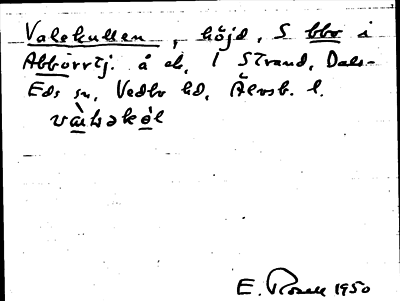 Valekullen, höjd, S bbr i
Abborrtj. å ek, 1 Strand, Dals-
Eds sn, Vedbo hd, Älvsb. l.
E. Rosell 1950